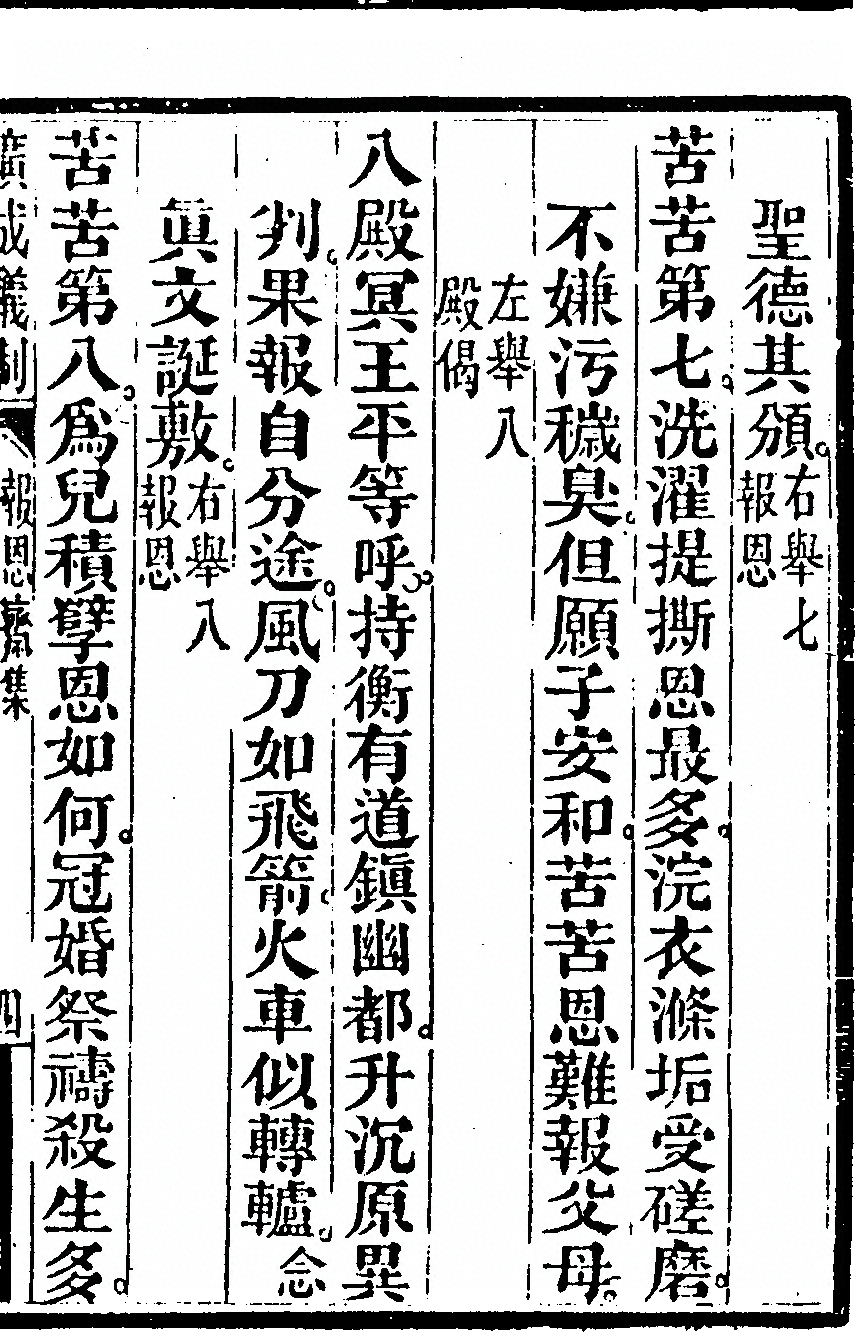 聖德其頒。右舉七報恩
苦苦第七。洗濯提撕恩最多。浣衣滌垢受磋磨。
不嫌污穢臭。但願子安和。苦苦恩難報父母。
左舉八殿偈
八殿冥王平等呼。持衡有道鎮幽都。升沉原異
判。果報自分途。風刀如飛箭。火車似轉轤。念
眞文誕敷。右舉八報恩
苦苦第八。爲兒積孽恩如何。冠婚祭禱殺生多。
廣成儀制 報恩齋集 四